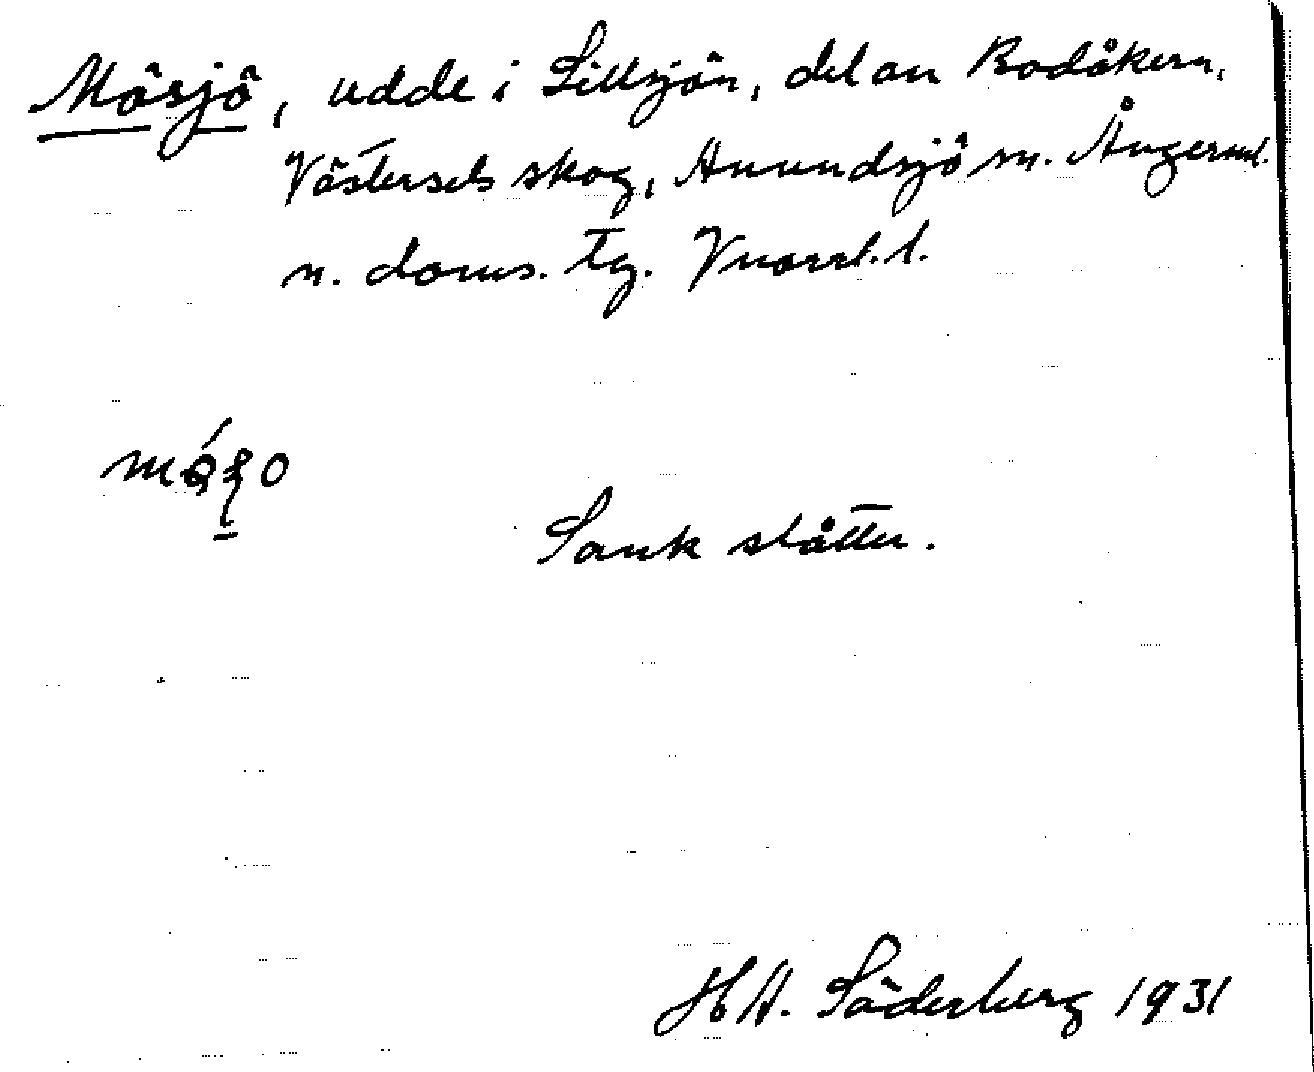 Mösjö, udde i Lillsjön, del av Bodåkern,
Västersels skog, Anundsjö sn. Ångerml.
n. doms. tg. Vnorrl. l.
Sank slåtter.
HA. Söderberg 1931